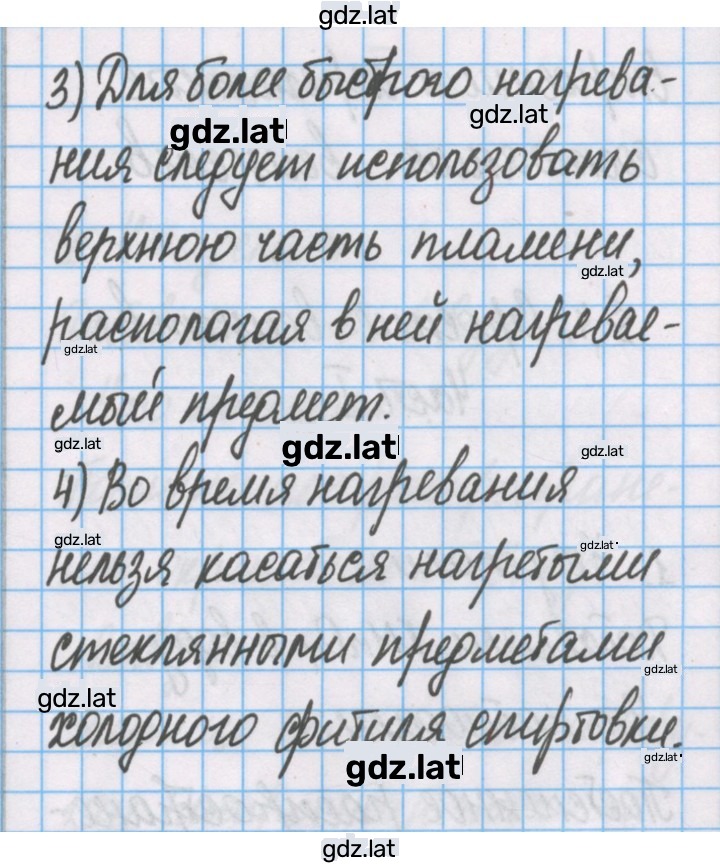 gdz.lat
3) Для более быстрого нагрева-
gdz.lat
gdz.lat
ния следует использовать
верхнюю часть пламени,
gdz.lat
располагая в ней нагревае-
gdz.lat
мый предмет.
gdz.lat
gdz.lat
gdz.lat
4) Во время нагревания
gdz.lat
gdz.lat
нельзя касаться нагретыми
стеклянными предметами
gdz.lat
gdz.lat
холодного фитиля спиртовки.
gdz.lat
gdz.lat
gdz.lat